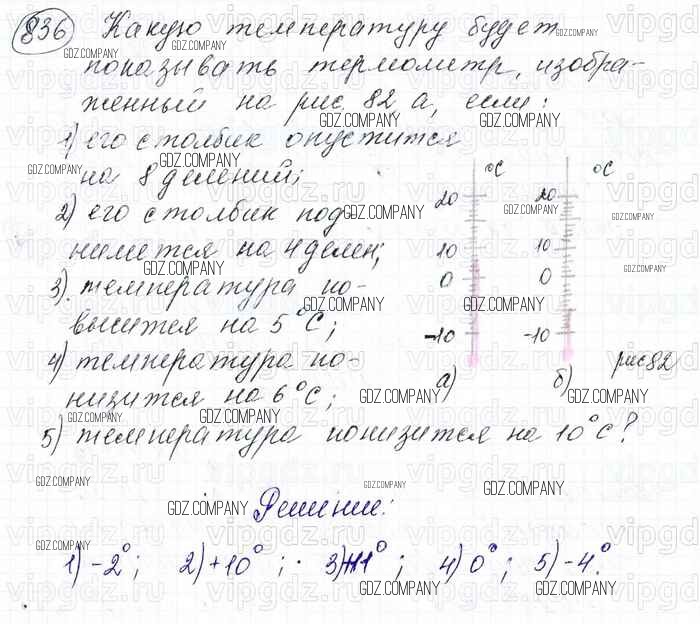 836 Какую температуру будет
показывать термометр, изобра-
женный на рис. 82 а, если:
1) его столбик опустится
на 8 делений;
2) его столбик под-
нимется на 4 делен;
3). температура по-
высится на 5°С;
4) температура по-
низится на 6°С;
5) температура понизится на 10°С?
°С °С
20 20
10 10
0 0
-10 -10
а) б) рис 82
Решение:
1) -2°; 2) +10°; 3) +11°; 4) 0°; 5) -4°.
GDZ.COMPANY
vipgdz.ru